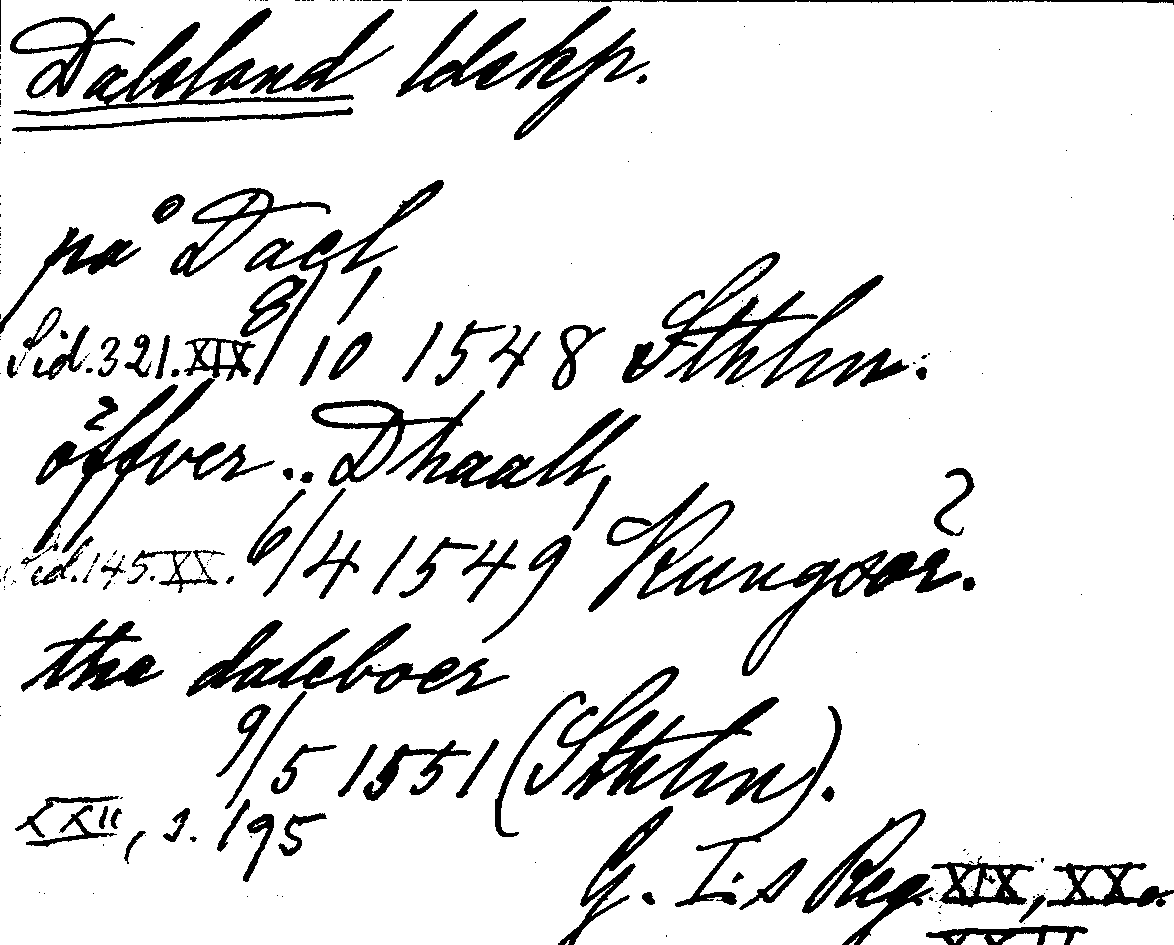 Dalsland ldskp.
på Dael,
Sid. 321. XIX. 8/10 1548 Sthlm.
öffver .. Dhaall,
Sid. 145. XX. 6/4 1549 Kungsör.
the daleboer
9/5 1551 (Sthlm).
XXII, s. 195
G. I:s Reg. XIX, XX o.
XXII